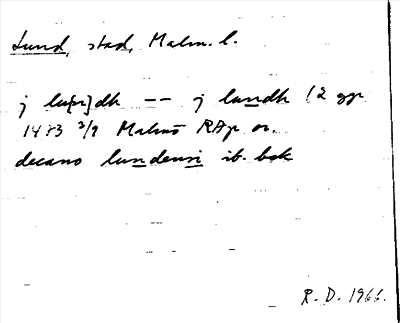 Lund, stad, Malm. l.
j lu[n]dh -- j lundh (2 ggr
1483 3/9 Malmö RAp or.
decano lundensi ib. bak
R. D. 1966.